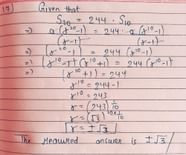 17) Given that
S20 = 244 · S10
⇒ a(r^20-1)/(r-1) = 244 · a(r^10-1)/(r-1)
⇒ r^20-1 = 244 (r^10-1)
⇒ (r^10-1)(r^10+1) = 244 (r^10-1)
⇒ (r^10+1) = 244
r^10 = 244-1
r^10 = 243
r = (243)^1/10
r = (√3)^10×1/10
r = ±√3
The required answer is ±√3